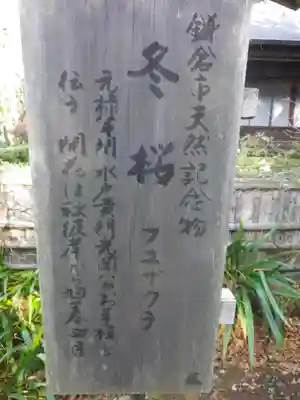 鎌倉市天然記念物
冬桜 フユザクラ
元禄年間 水戸黄門光圀公お手植と
伝う 開花は秋彼岸から旧